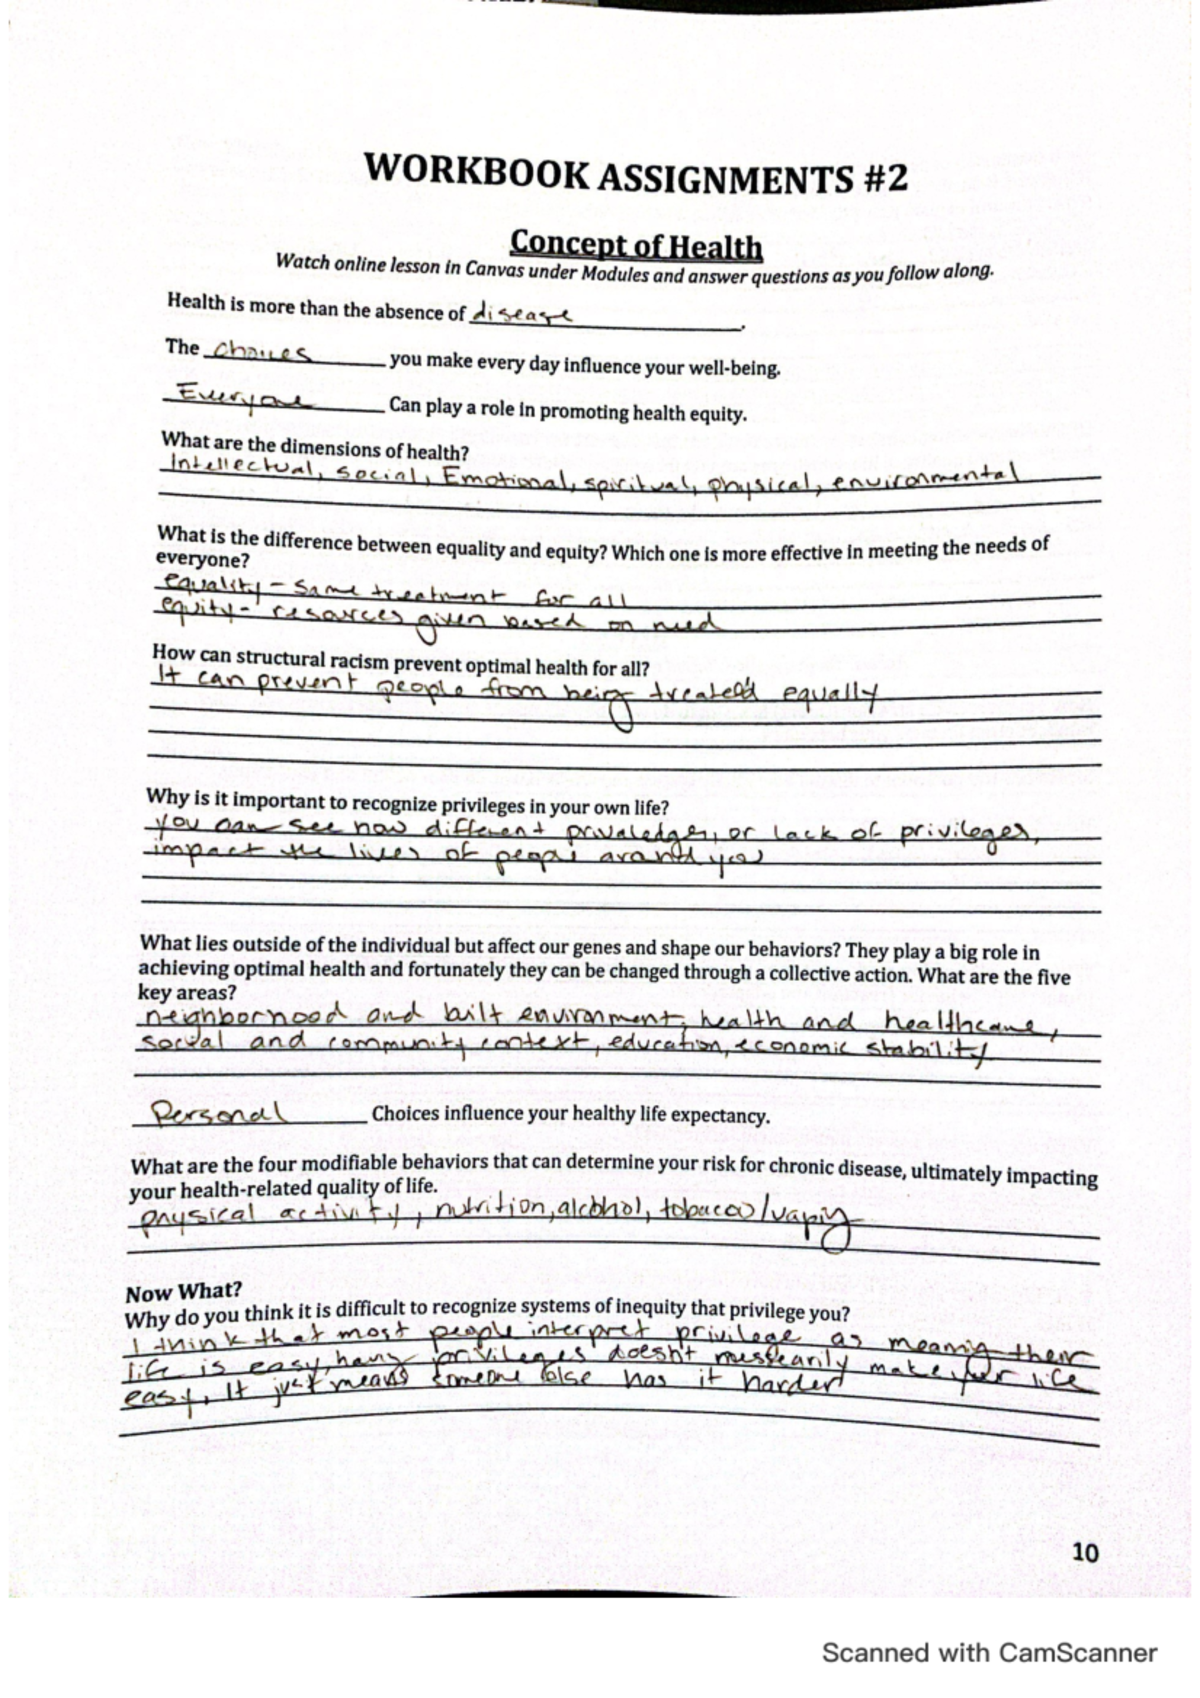 WORKBOOK ASSIGNMENTS #2
Concept of Health
Watch online lesson in Canvas under Modules and answer questions as you follow along.
Health is more than the absence of disease.
The choices you make every day influence your well-being.
Everyone Can play a role in promoting health equity.
What are the dimensions of health?
Intellectual, social, Emotional, spiritual, physical, environmental
What is the difference between equality and equity? Which one is more effective in meeting the needs of
everyone?
equality - same treatment for all
equity - resources given based on need
How can structural racism prevent optimal health for all?
It can prevent people from being treated equally
Why is it important to recognize privileges in your own life?
you can see how different privaledges, or lack of privileges,
impact the lives of people around you
What lies outside of the individual but affect our genes and shape our behaviors? They play a big role in
achieving optimal health and fortunately they can be changed through a collective action. What are the five
key areas?
neighborhood and built environment, health and healthcare,
social and community context, education, economic stability
Personal Choices influence your healthy life expectancy.
What are the four modifiable behaviors that can determine your risk for chronic disease, ultimately impacting
your health-related quality of life.
physical activity, nutrition, alcohol, tobacco/vaping
Now What?
Why do you think it is difficult to recognize systems of inequity that privilege you?
I think that most people interpret privilege as meaning their
life is easy, having privileges doesn't messearily make your life
easy, It just means someone else has it harder
10
Scanned with CamScanner